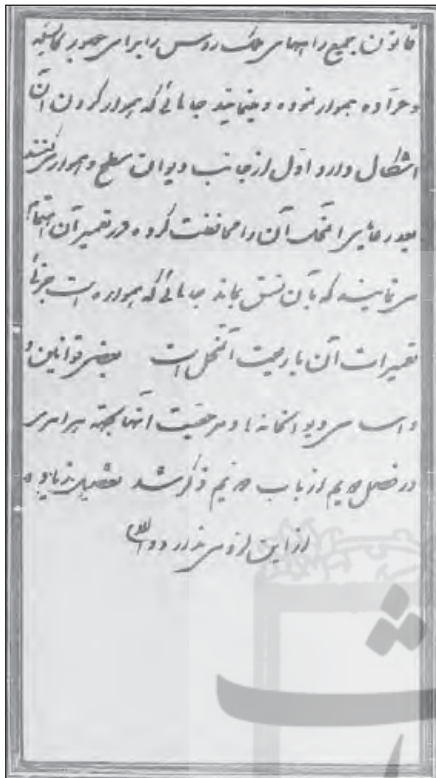 قانون جمیع راههای ملک روس را برای عبور کالسکه
و عراده هموار نموده و مینمایند جاهائی که هموار کردن آن
اشکال دارد اول از جانب دیوان مسطح و هموار میکنند
بعد رعایای آنملک آن را محافظت کرده در تعمیر آن اهتمام
می نمایند که بآن نسق بماند جاهائی که هموار است جزئی
تعمیرات آن با رعیت آنمحل است بعضی قوانین و
اسامی دیوانخانه ها و مرجعیت آنها بجهة هر امری
در فصل دویم از باب دویم ذکر شد تفصیل زیاده
از این لزومی ندارد